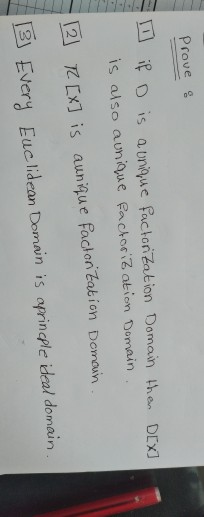 Prove :
[1] if D is a unique factorization Domain then D[x]
is also aunique factorization Domain.
[2] Z[x] is aunique factorization Domain.
[3] Every Euclidean Domain is aprinciple ideal domain.